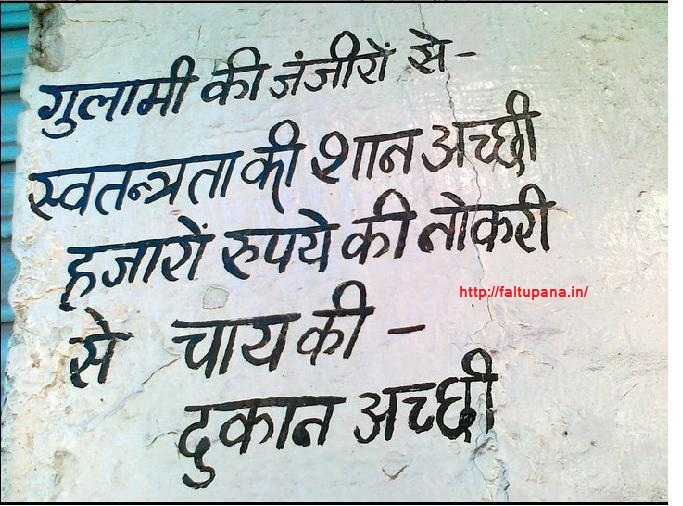 गुलामी की जंजीरों से-
स्वतन्त्रता की शान अच्छी
हजारों रुपये की नोकरी
http://faltupana.in/
से चाय की -
दुकान अच्छी